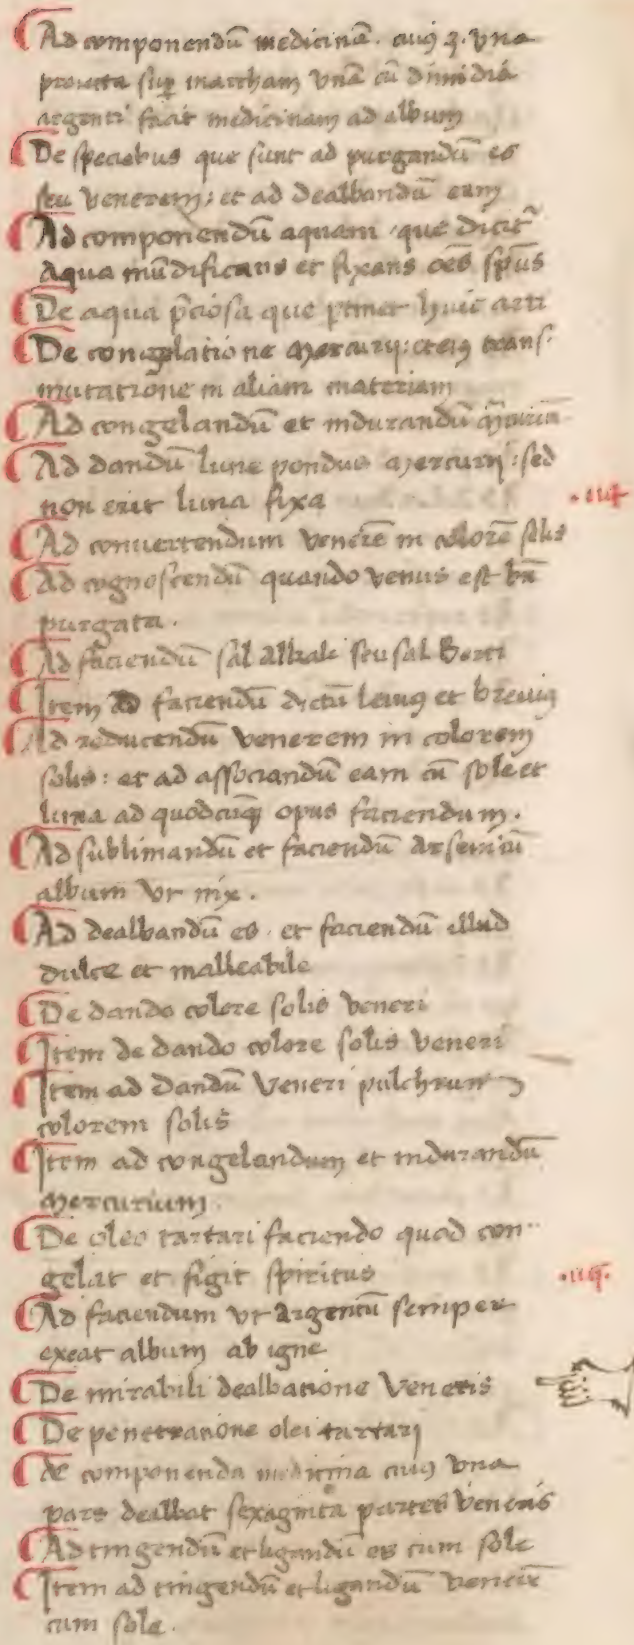 Ad componendū medicinā. cuiꝰ ʒ. vna
proiecta suꝑ marcham vnā cū dimidia
argenti facit medicinam ad album
De speciebus que sunt ad purgandū es
seu venerem: et ad dealbandū eam
Ad componendū aquam que dicit̄
Aqua mūdificans et fixans oēs sp̄us
De aqua p̄ciosa que ꝑtinet huic arti
De congelatione mercurij: et eiꝰ trans-
mutatione in aliam materiam
Ad congelandū et indurandū m̄curiū
Ad dandū lune pondus mercurij: sed
non erit luna fixa
Ad conuertendum venerē in colorē solis
Ad cognoscendū quando venus est bn̄
purgata.
Ad faciendū sal Alkali seu sal Borri
Item ad faciendū dictū leuiꝰ et breuiꝰ
Ad reducendū venerem in colorem
solis: et ad associandū eam cū sole et
luna ad quodcūq̄ opus faciendum.
Ad sublimandū et faciendū Arsenicū
album vt nix.
Ad dealbandū es. et faciendū illud
dulce et malleabile
De dando colore solis veneri
Item de dando colore solis veneri
Item ad dandū Veneri pulchrum
colorem solis
Item ad congelandum et indurandū
mercurium.
De oleo tartari faciendo quod con-
gelat et figit spiritus
Ad faciendum vt Argentū semper
exeat album ab igne
De mirabili dealbatione Veneris
De penetratione olei tartarj
de componenda medicina cuiꝰ vna
pars dealbat sexaginta partes veneris
Ad tingendū et ligandū es cum sole
Item ad tingendū et ligandū venerē
cum sole.